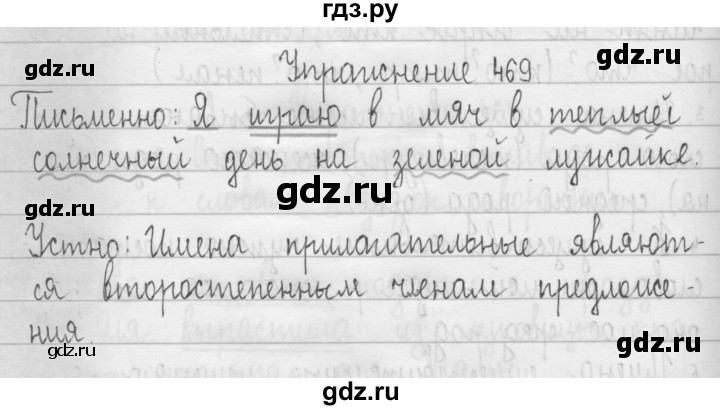 гдз.ру
Упражнение 469
gdz.ru
gdz.ru
Письменно: Я играю в мяч в теплый
солнечный день на зеленой лужайке.
gdz.ru
gdz.ru
gdz.ru
Устно: Имена прилагательные являют-
ся второстепенным членам предложе-
ния.
gdz.ru
gdz.ru
gdz.ru